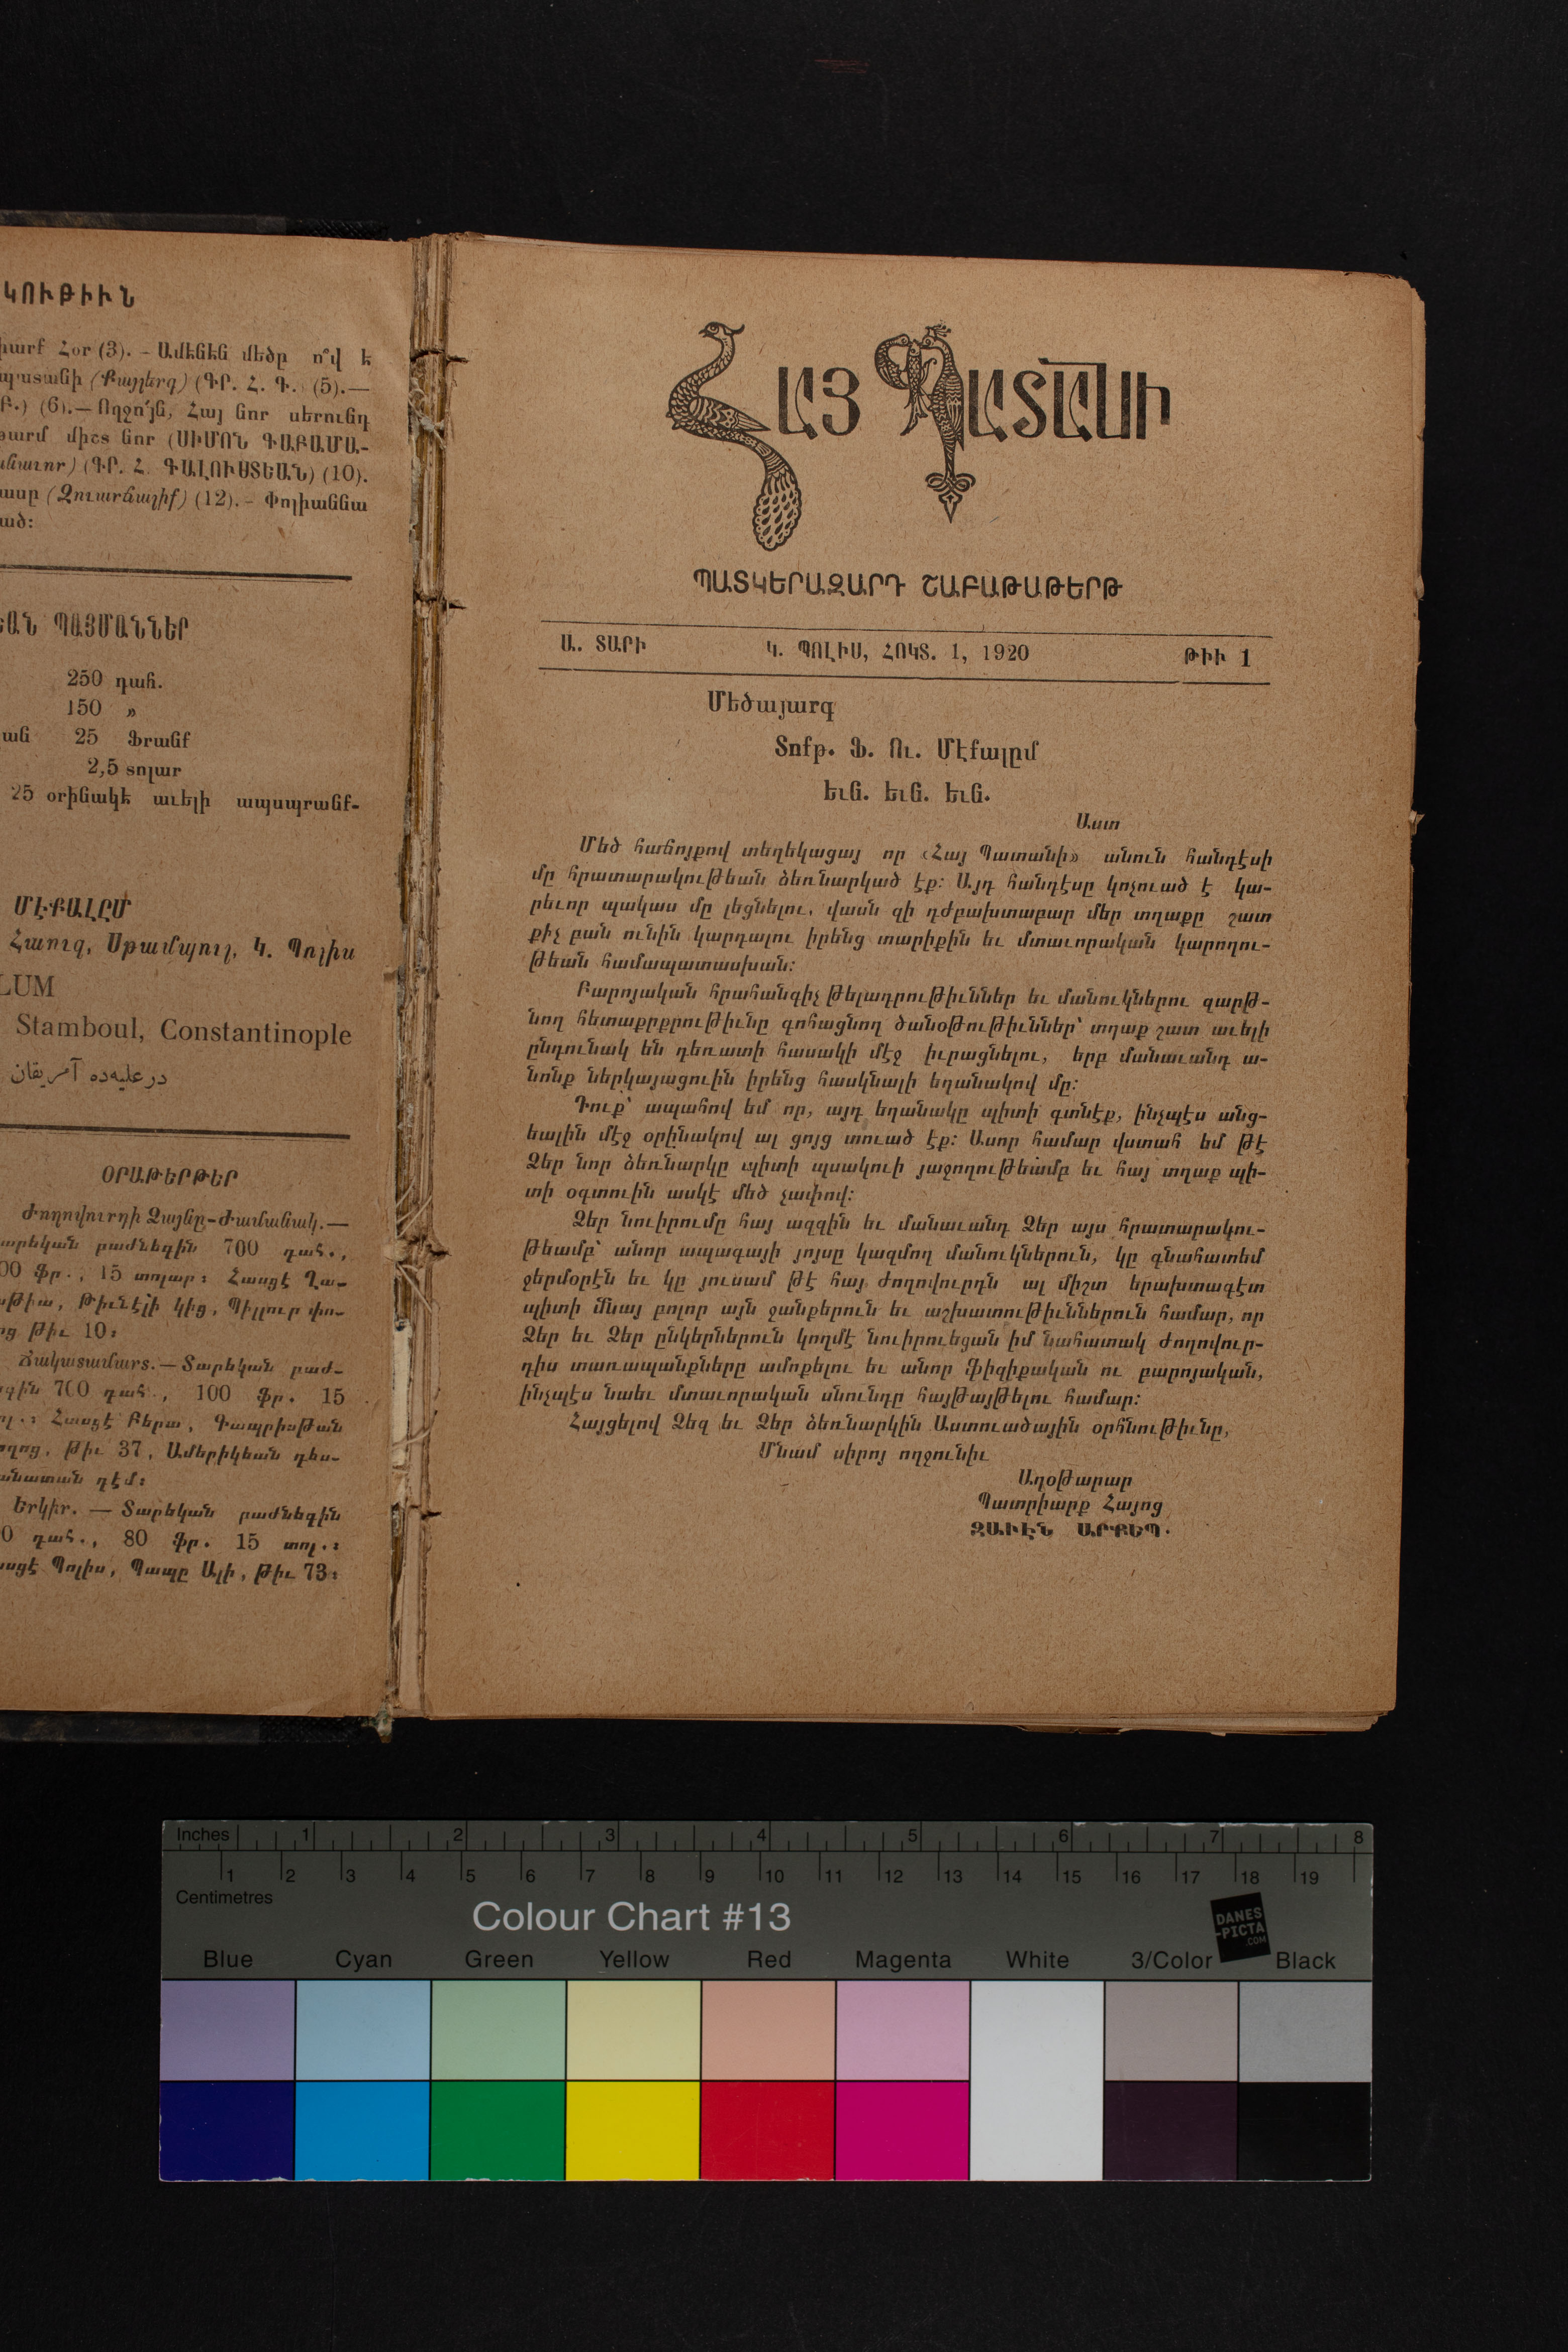 ԿՈՒԹԻՒՆ
Հօր (3). – Ամենեն մեծը ո՞վ է
(Քայլերգ) (ԳՐ. Հ. Գ. (5).—
(6).— Ողջո՜յն, Հայ նոր սերունդ
միշտ նոր (ՍԻՄՈՆ ԳԱԲԱՄԱ-
(ԳՐ. Հ. ԳԱԼՈՒՍՏԵԱՆ) (10).
(Զուարճալիք) (12). – Փոլիաննա
ՊԱՅՄԱՆՆԵՐ
250 դահ.
150 »
25 Ֆրանք
2,5 տոլար
25 օրինակէ աւելի ապսպրանք-
ՄԷՔԱԼԸՄ
Հաուզ, Սթամպուլ, Կ. Պոլիս
LUM
Stamboul, Constantinople
درعليه‌ده آمريقان
ՕՐԱԹԵՐԹԵՐ
Ժողովուրդի Ձայնը–Ժամանակ.—
բաժնեգին 700 դահ.,
00 ֆր., 15 տոլար։ Հասցէ Ղա-
Թիւնէլի կից, Պիլլուր փո-
թիւ 10։
Ճակատամարտ.— Տարեկան բաժ-
700 դահ., 100 ֆր. 15
Հասցէ Բերա, Գապրիսթան
թիւ 37, Ամերիկեան դես-
դէմ։
Երկիր. — Տարեկան բաժնեգին
0 դահ., 80 ֆր. 15 տոլ.։
Պոլիս, Պապը Ալի, թիւ 73։
ՀԱՅ ՊԱՏԱՆԻ
ՊԱՏԿԵՐԱԶԱՐԴ ՇԱԲԱԹԱԹԵՐԹ
Ա. ՏԱՐԻ Կ. ՊՈԼԻՍ, ՀՈԿՏ. 1, 1920 ԹԻՒ 1
Մեծայարգ
Տոքթ. Ֆ. Ու. Մէքալըմ
եւն. եւն. եւն.
Աստ
Մեծ հաճոյքով տեղեկացայ որ «Հայ Պատանի» անուն հանդէսի
մը հրատարակութեան ձեռնարկած էք։ Այդ հանդէսը կոչուած է կա-
րեւոր պակաս մը լեցնելու, վասն զի դժբախտաբար մեր տղաքը շատ
քիչ բան ունին կարդալու իրենց տարիքին եւ մտաւորական կարողու-
թեան համապատասխան։
Բարոյական հրահանգիչ թելադրութիւններ եւ մանուկներու զարթ-
նող հետաքրքրութիւնը գոհացնող ծանօթութիւններ՝ տղաք շատ աւելի
ընդունակ են դեռատի հասակի մէջ իւրացնելու, երբ մանաւանդ ա-
նոնք ներկայացուին իրենց հասկնալի եղանակով մը։
Դուք՝ ապահով եմ որ, այդ եղանակը պիտի գտնէք, ինչպէս անց-
եալին մէջ օրինակով ալ ցոյց տուած էք։ Ասոր համար վստահ եմ թէ
Ձեր նոր ձեռնարկը պիտի պսակուի յաջողութեամբ եւ հայ տղաք պի-
տի օգտուին ասկէ մեծ չափով։
Ձեր նուիրումը հայ ազգին եւ մանաւանդ Ձեր այս հրատարակու-
թեամբ՝ անոր ապագայի յոյսը կազմող մանուկներուն, կը գնահատեմ
ջերմօրէն եւ կը յուսամ թէ հայ ժողովուրդն ալ միշտ երախտագէտ
պիտի մնայ բոլոր այն ջանքերուն եւ աշխատութիւններուն համար, որ
Ձեր եւ Ձեր ընկերներուն կողմէ նուիրուեցան իմ նահատակ ժողովուր-
դիս տառապանքները ամոքելու եւ անոր ֆիզիքական ու բարոյական,
ինչպէս նաեւ մտաւորական սնունդը հայթայթելու համար։
Հայցելով Ձեզ եւ Ձեր ձեռնարկին Աստուածային օրհնութիւնը,
Մնամ սիրոյ ողջունիւ
Աղօթարար
Պատրիարք Հայոց
ԶԱՒԷՆ ԱՐՔԵՊ.
Inches 1 2 3 4 5 6 7 8
1 2 3 4 5 6 7 8 9 10 11 12 13 14 15 16 17 18 19
Centimetres
Colour Chart #13
DANES
-PICTA
.COM
Blue Cyan Green Yellow Red Magenta White 3/Color Black